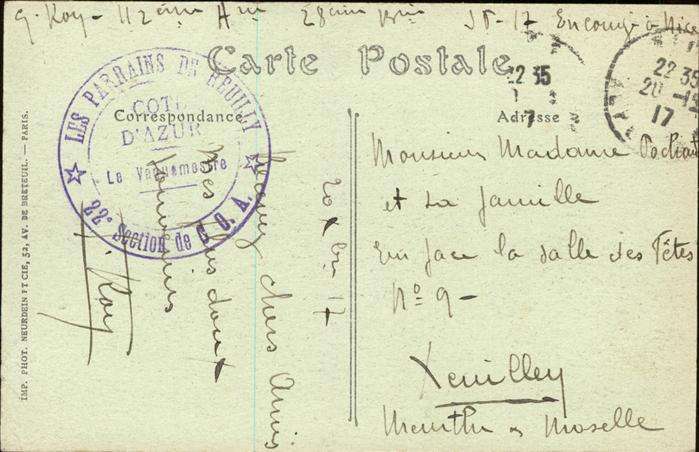 G. Roy - 112ème 28ème 15-17 En congé à Nice
Carte Postale
Correspondance
Adresse
LES PARRAINS DE REUILLY
COTE D'AZUR
Le Vaguemestre
22e Section de C. O. A.
22 35
17
22 35
20
17
20 Xbre 17
Recevez chers Amis
mes plus doux
souvenirs
G. Roy
Monsieur Madame
et la famille
En face la salle des Fêtes
No 9 -
Xeuilley
Meurthe & Moselle
IMP. PHOT. NEURDEIN ET CIE, 52, AV. DE BRETEUIL. — PARIS.